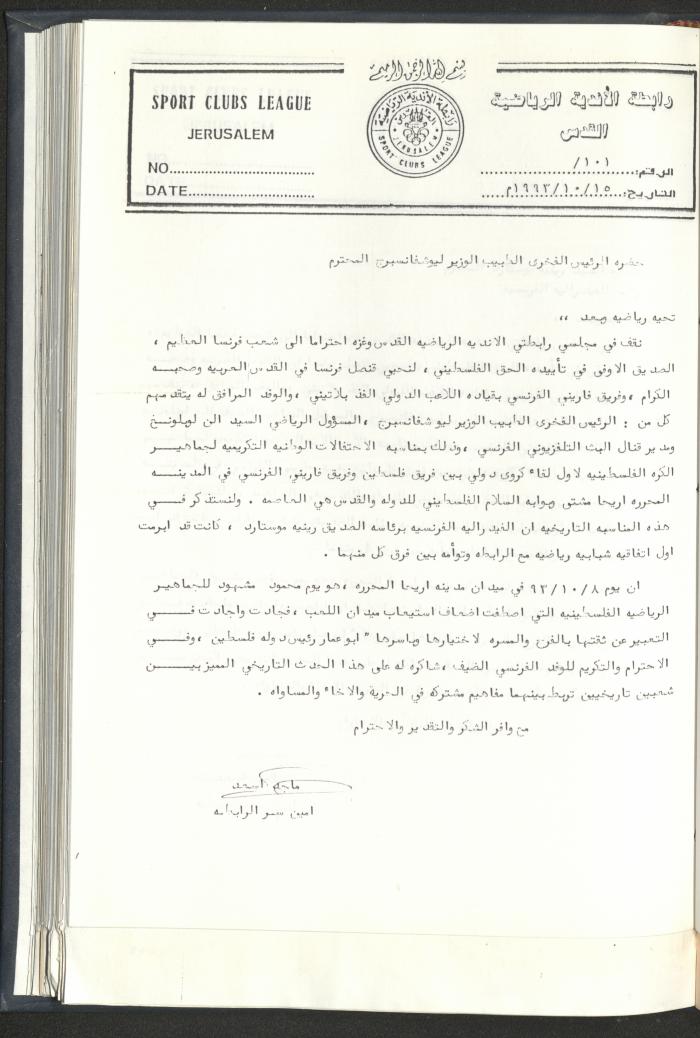 بسم الله الرحمن الرحيم
SPORT CLUBS LEAGUE
JERUSALEM
NO
DATE
رابطة الأندية الرياضية
القدس
SPORT CLUBS LEAGUE
JERUSALEM
رابطة الأندية الرياضية
القدس
الرقم: ١٠١/
التاريخ: ١٩٩٣/١٠/١٥م
حضره الرئيس الفخرى الطبيب الوزير ليو شفانسبرج المحترم
تحيه رياضيه وبعد ،،
نقف في مجلسي رابطتي الانديه الرياضيه القدس وغزه احتراما الى شعب فرنسا العظيم ،
الصديق الاوفى في تأييده الحق الفلسطيني ، لنحيي قنصل فرنسا في القدس العربيه وصحبه
الكرام ، وفريق فاريني الفرنسي بقياده اللاعب الدولي الفذ بلاتيني ، والوفد المرافق له يتقدمهم
كل من : الرئيس الفخرى الطبيب الوزير ليو شفانسبرج ، المسؤول الرياضي السيد الن
ومدير قنال البث التلفزيوني الفرنسي ، وذلك بمناسبه الاحتفالات الوطنيه التكريميه لجماهير
الكره الفلسطينيه لاول لقاء كروى دولي بين فريق فلسطين وفريق فاريني الفرنسي في المدينه
المحرره اريحا مشتى وبوابه السلام الفلسطيني للدوله والقدس هي العاصمه . ولنستذكر في
هذه المناسبه التاريخيه ان الفيدراليه الفرنسيه برئاسه الصديق رينيه موستارد ، كانت قد ابرمت
اول اتفاقيه شبابيه رياضيه مع الرابطه وتوأمه بين فرق كل منهما .
ان يوم ٩٣/١٠/٨ في ميدان مدينه اريحا المحرره ، هو يوم محمود مشهود للجماهير
الرياضيه الفلسطينيه التي اصطفت اضعاف استيعاب ميدان اللعب ، فجادت واجادت في
التعبير عن ثقتها بالفرح والمسره لاختيارها وباسرها " ابو عمار رئيس دوله فلسطين ، وفي
الاحترام والتكريم للوفد الفرنسي الضيف ، شاكره له على هذا الحدث التاريخي المميز بين
شعبين تاريخيين تربط بينهما مفاهيم مشتركه في الحرية والاخاء والمساواه .
مع وافر الشكر والتقدير والاحترام
ماجد اسعد
امين سر الرابطه